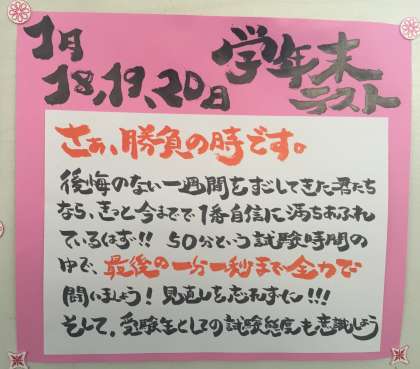 1月
18,19,20日
学年末
テスト
さぁ、勝負の時です。
後悔のない一週間をすごしてきた君たち
なら、きっと今までで1番自信に満ちあふれ
ているはず!! 50分という試験時間の
中で、最後の一分一秒まで全力で
闘いましょう! 見直しを忘れずに!!!
そして、受験生としての試験態度も意識しよう